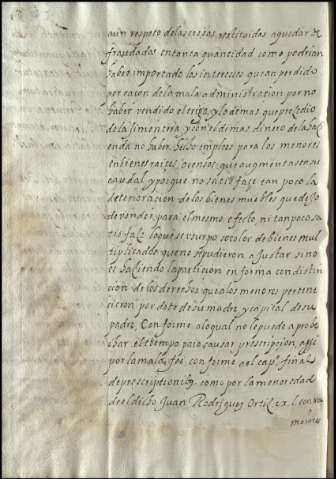 aun respeto de las cossas solicitadas a quedar de
fraudadas en tanta quantidad como podrian
haber importado los intereses que an perdido
por raçon de la mala administracion por no
haber vendido el trigo, y lo demas que procedio
de la simentera y con el demas dinero de la haz
ienda no haber hecho impleos para los menores
en bienes raizes, o censos, que augmentasen su
caudal, y por que no satisfaze tan poco la
deterioracion de los bienes muebles que dejo
de vender, para el mesmo efecto, ni tanpoco sa
tisfaze lo que se usurpo so color de bienes mul
tiplicados que no se pudieron ajustar si no
es haziendo la particion en forma con distin
cion de los derechos que a los menores pertene
cieron por dote de su madre, y capital de su
padre, Conforme a lo qual no le puede aprobe
char el tiempo para causar prescripcion, assi
por la mala fee conforme el cap. final
de prescriptionib. como por la menor edad
de el dicho Juan Rodriguez Ortiz ex l.
mores